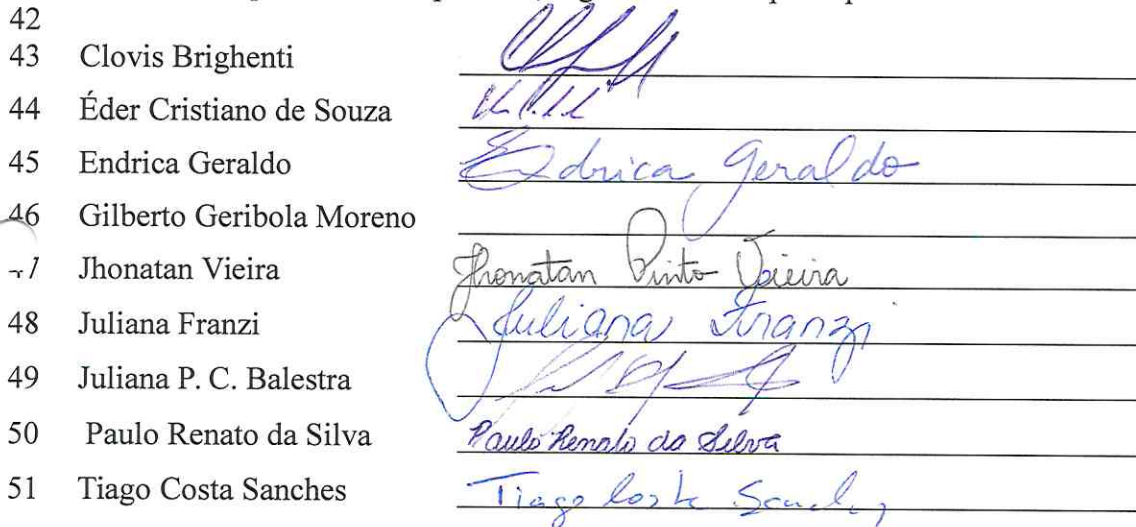 42
43 Clovis Brighenti
44 Éder Cristiano de Souza
45 Endrica Geraldo Endrica Geraldo
46 Gilberto Geribola Moreno
47 Jhonatan Vieira Jhonatan Pinto Vieira
48 Juliana Franzi Juliana Franzi
49 Juliana P. C. Balestra
50 Paulo Renato da Silva Paulo Renato da Silva
51 Tiago Costa Sanches Tiago Costa Sanches